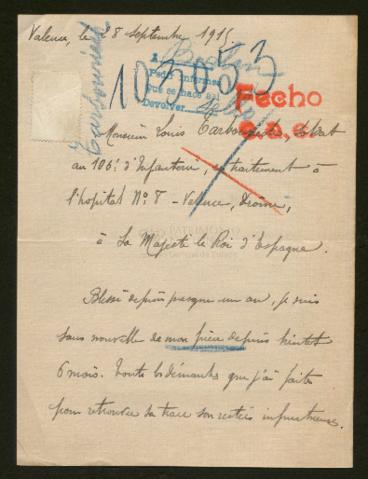 Valence, le 28 Septembre 1915
103053
Berlin
Pedir informes
que se hace así
Devolver
Fecho
Monsieur Louis soldat
au 106e d'Infanterie, en traitement à
l'hopital No 8 - Valence, Drôme,
à Sa Majesté le Roi d'Espagne.
Blessé depuis presque un an, je suis
sans nouvelle de mon frère depuis bientot
6 mois. Toute les démarches que j'ai faites
pour retrouver sa trace sont restées infructueuses.